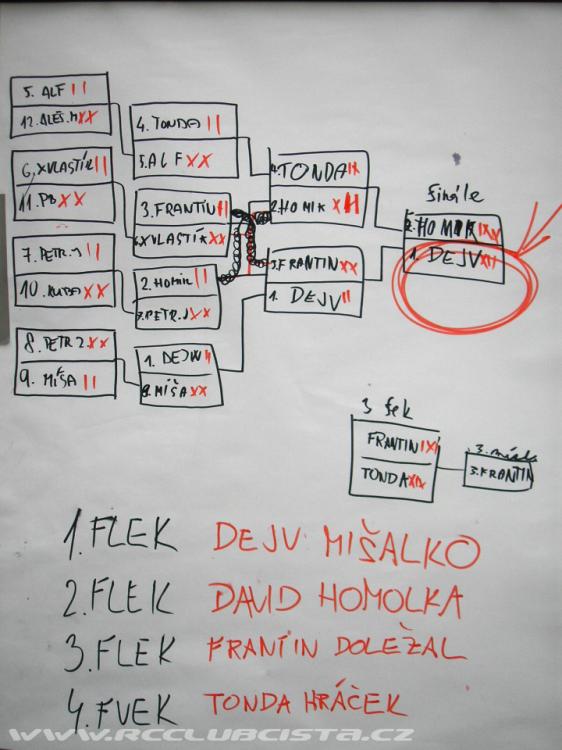 5. ALF II
12. ALEŠ.M XX
6. XVLASTÍK II
11. PB XX
7. PETR.J II
10. KUBA XX
8. PETR 2. XX
9. MÍŠA II
4. TONDA II
5. ALF XX
3. FRANTÍN II
6. XVLASTÍK XX
2. HOMIK II
7. PETR.J XX
1. DEJV II
8. MÍŠA XX
TONDA
2. HOMIK
3. FRANTIN XX
1. DEJV II
finále
2. HOMIK
1. DEJV
3 flek
FRANTIN
TONDA
3. FRANTIN
1. FLEK DEJV MIŠALKO
2. FLEK DAVID HOMOLKA
3. FLEK FRANTIN DOLEŽAL
4. FVEK TONDA HRÁČEK
WWW.RCCLUBCISTA.CZ